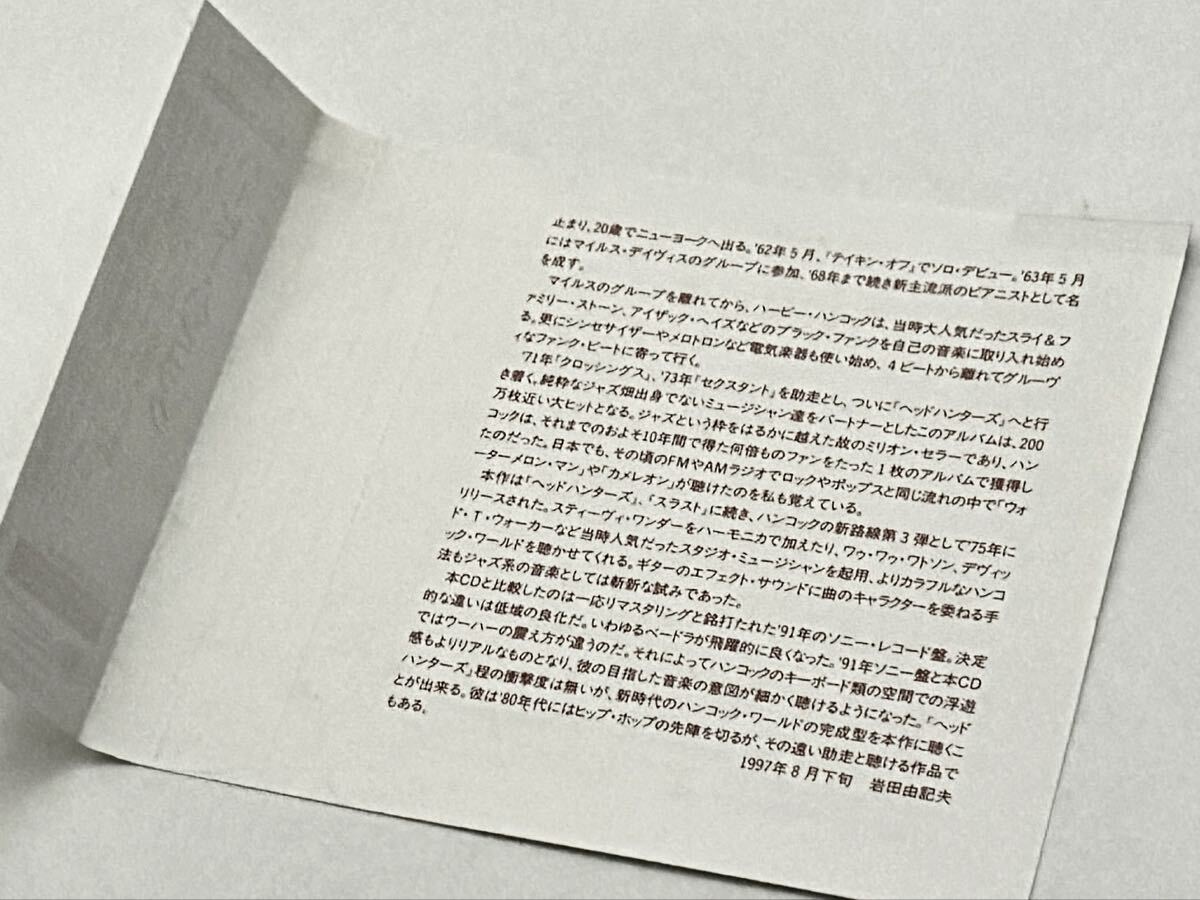 止まり、20歳でニューヨークへ出る。'62年5月、『テイキン・オフ』でソロ・デビュー。'63年5月
にはマイルス・デイヴィスのグループに参加、'68年まで続き新主流派のピアニストとして名
を成す。
マイルスのグループを離れてから、ハービー・ハンコックは、当時大人気だったスライ＆フ
ァミリー・ストーン、アイザック・ヘイズなどのブラック・ファンクを自己の音楽に取り入れ始め
る。更にシンセサイザーやメロトロンなど電気楽器も使い始め、4ビートから離れてグルーヴ
ィなファンク・ビートに寄って行く。
'71年『クロッシングス』、'73年『セクスタント』を助走とし、ついに『ヘッドハンターズ』へと行
き着く。純粋なジャズ畑出身でないミュージシャン達をパートナーとしたこのアルバムは、200
万枚近い大ヒットとなる。ジャズという枠をはるかに越えた故のミリオン・セラーであり、ハン
コックは、それまでのおよそ10年間で得た何倍ものファンをたった1枚のアルバムで獲得し
たのだった。日本でも、その頃のFMやAMラジオでロックやポップスと同じ流れの中で「ウォ
ーターメロン・マン」や「カメレオン」が聴けたのを私も覚えている。
本作は『ヘッドハンターズ』、『スラスト』に続き、ハンコックの新路線第3弾として'75年に
リリースされた。スティーヴィ・ワンダーをハーモニカで加えたり、ワゥ・ワゥ・ワトソン、デヴィッ
ド・T・ウォーカーなど当時人気だったスタジオ・ミュージシャンを起用、よりカラフルなハンコ
ック・ワールドを聴かせてくれる。ギターのエフェクト・サウンドに曲のキャラクターを委ねる手
法もジャズ系の音楽としては斬新な試みであった。
本CDと比較したのは一応リマスタリングと銘打たれた'91年のソニー・レコード盤。決定
的な違いは低域の良化だ。いわゆるベードラが飛躍的に良くなった。'91年ソニー盤と本CD
ではウーハーの震え方が違うのだ。それによってハンコックのキーボード類の空間での浮遊
感もよりリアルなものとなり、彼の目指した音楽の意図が細かく聴けるようになった。『ヘッド
ハンターズ』程の衝撃度は無いが、新時代のハンコック・ワールドの完成型を本作に聴くこ
とが出来る。彼は'80年代にはヒップ・ホップの先陣を切るが、その遠い助走と聴ける作品で
もある。
1997年8月下旬　岩田由記夫